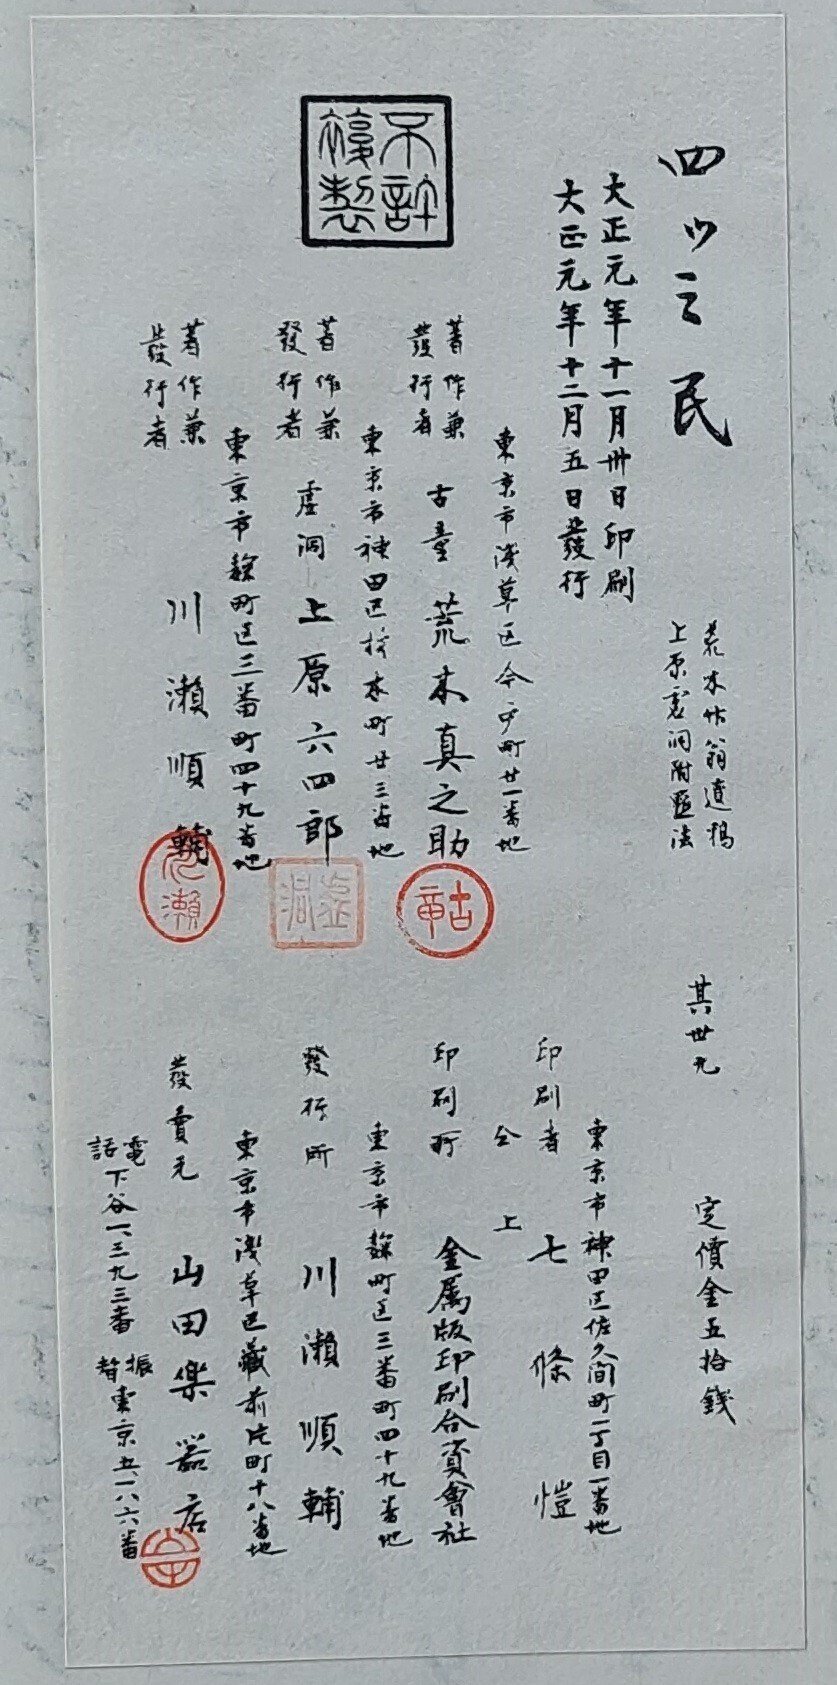 四ツ之民
荒木竹翁遺稿
上原虚洞附點法
其卅九
定價金五拾錢
大正元年十一月卅日印刷
大正元年十二月五日發行
不許複製
東京市淺草區今戸町廿一番地
著作兼發行者 古童 荒木真之助
古童
東京市神田区松本町廿三番地
著作兼發行者 虚洞 上原六四郎
虚洞
東京市麹町區三番町四十九番地
著作兼發行者 川瀬順輔
川瀬
東京市神田区佐久間町一丁目一番地
印刷者 七條愷
仝上
印刷所 金属版印刷合資會社
東京市麹町區三番町四十九番地
發行所 川瀬順輔
東京市淺草區藏前片町十八番地
發賣元 山田樂器店
電話下谷一、三九三番 振替東京五一八六番